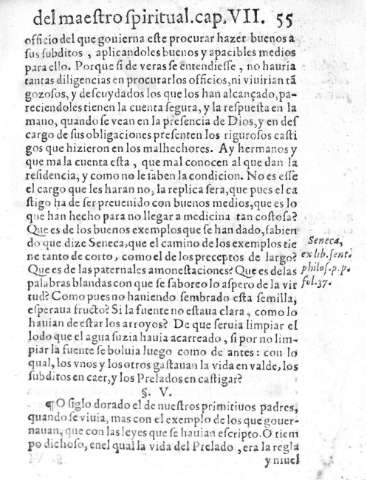 del maestro spiritual.cap.VII. 55
officio del que gouierna este procurar hazer buenos a
sus subditos , aplicandoles buenos y apacibles medios
para ello. Porque si de veras se entendiesse , no hauria
tantas diligencias en procurar los officios, ni viuirian tã
gozosos, y descuydados los que los han alcançado, pa-
reciendoles tienen la cuenta segura, y la respuesta en la
mano, quando se vean en la presencia de Dios, y en des
cargo de sus obligaciones presenten los rigurosos casti
gos que hizieron en los malhechores. Ay hermanos y
que mala cuenta esta , que mal conocen al que dan la
residencia, y como no le saben la condicion. No es esse
el cargo que les haran no, la replica sera, que pues el ca
stigo ha de ser preuenido con buenos medios, que es lo
que han hecho para no llegar a medicina tan costosa?
Que es de los buenos exemplos que se han dado, sabien
do que dize Seneca, que el camino de los exemplos tie
ne tanto de corto , como el de los preceptos de largo?
Que es de las paternales amonestaciones? Que es de las
palabras blandas con que se saboreo lo aspero de la vir
tud? Como pues no hauiendo sembrado esta semilla,
esperaua fructo? Si la fuente no estaua clara , como lo
hauian de estar los arroyos? De que seruia limpiar el
lodo que el agua suzia hauia acarreado , si por no lim-
piar la fuente se boluia luego como de antes : con lo
qual, los vnos y los otros gastauan la vida en valde, los
subditos en caer, y los Prelados en castigar?
§. V.
¶ O siglo dorado el de nuestros primitiuos padres,
quando se viuia, mas con el exemplo de los que gouer-
nauan, que con las leyes que se hauian escripto. O tiem
po dichoso, en el qual la vida del Prelado , era la regla
y niuel
Seneca,
ex lib. sent.
philos. p. p.
fol. 37.